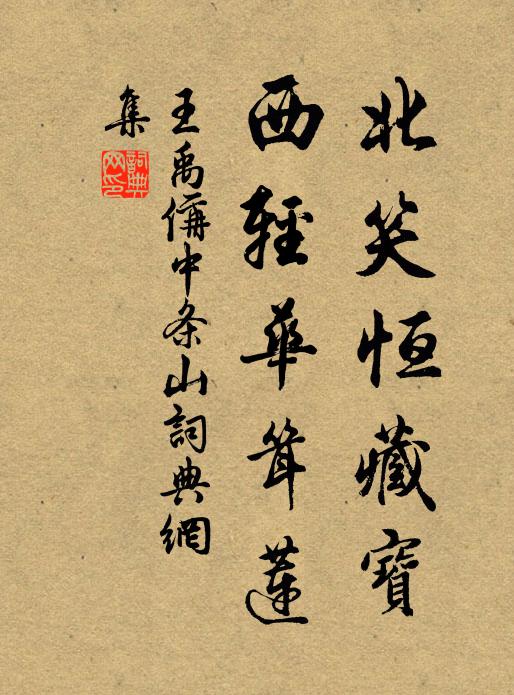 北笑恒藏寶
西輕華耸蓮
王禹偁中条山詞典網
集
詞典网印